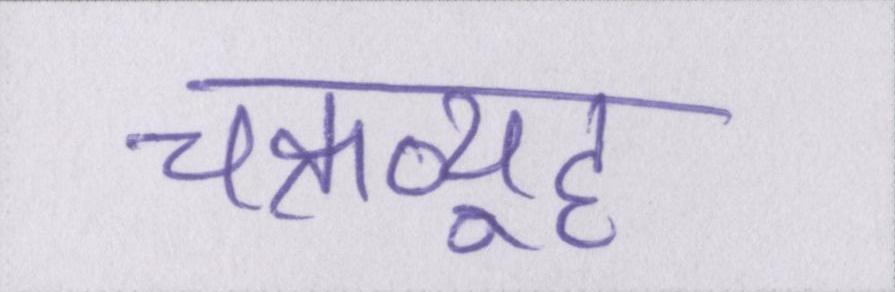 चक्रव्यूह